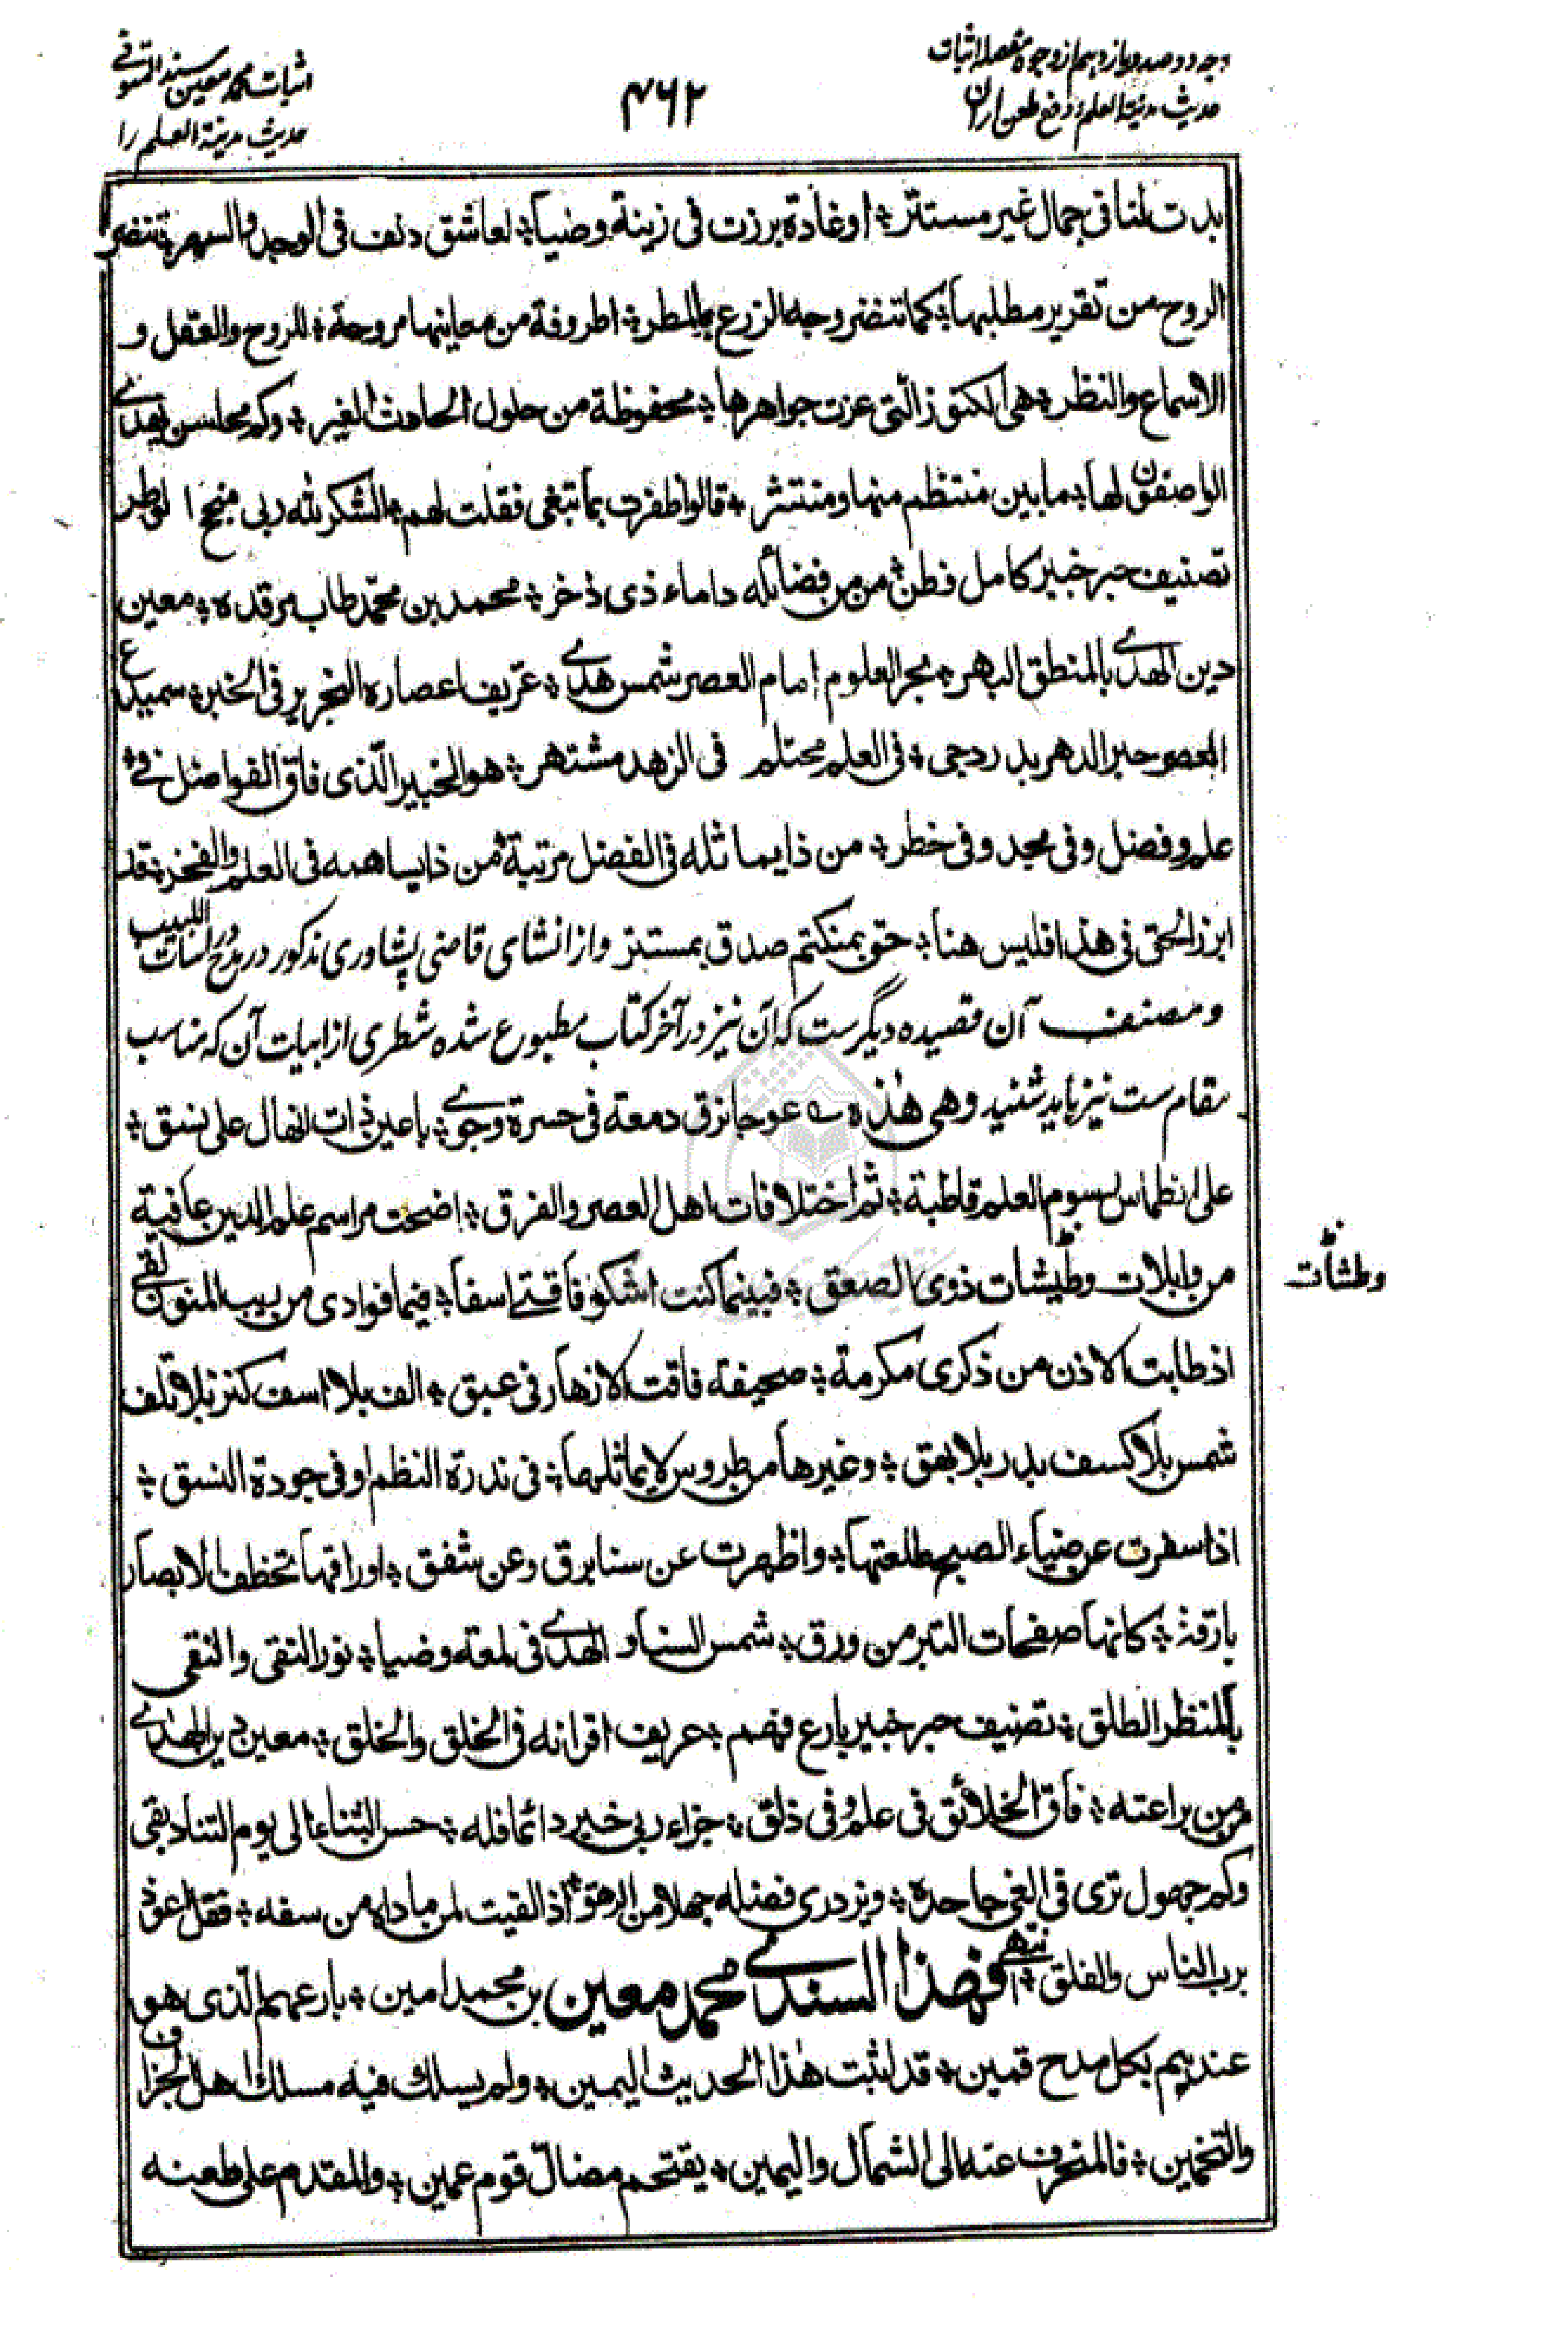 وجه دو صد و یازدهم از وجوه مفصله اثبات
حدیث مدینة العلم و دفع طعن از ان
۴۶۲
اثبات محمد معین سندی المتوفی
حدیث مدینة العلم را
بدت لنا فی جمال غیر مستتر ÷ او غادة برزت فی زینة وضیا ÷ لعاشق دنف فی الوجد والسهر ÷ تنضر
الروح من تقریر مطلبها ÷ کما تنضر وجه الزرع بالمطر ÷ اطروفة من معاینها مروحة ÷ للروح والعقل و
الاسماع والنظر ÷ هی الکنوز التی عزت جواهرها ÷ محفوظة من حلول الحادث الغیر ÷ وکم محاسن یهدی
الواصفون لها ÷ ما بین منتظم منها ومنتثر ÷ قالوا ظفرت بما تبغی فقلت لهم ÷ الشکر لله ربی منجح الوطر
تصنیف حبر خبیر کامل فطن ÷ من من فضائله داماء ذی ذخر ÷ محمد بن محمد طاب مرقده ÷ معین
دین الهدی بالمنطق البهر ÷ بحر العلوم امام العصر شمس هدی ÷ عریف اعصاره النحریر فی الخبر ÷ سمیدع
العصر حبر الدهر بدر دجی ÷ فی العلم محتلم فی الزهد مشتهر ÷ هو الخبیر الذی فاق الفواضل فی ÷
علم وفضل وفی مجد وفی خطر ÷ من ذا یماثله فی الفضل مرتبة ÷ من ذا یساهمه فی العلم والفخر ÷ قد
ابرز الحق فی هذا فلیس هنا ÷ حق بمنکتم صدق بمستتر واز انشای قاضی پشاوری مذکور در مدح دراسات اللبیب
ومصنف آن قصیده دیگرست که آن نیز در آخر کتاب مطبوع شده شطری از ابیات آن که مناسب
مقام ست نیز باید شنید وهی هذه ے عوجا نرق دمعة فی حسرة وجوی ÷ یا عین ذات انهال علی نسق ÷
علی انطماس رسوم العلم قاطبة ÷ ثم اختلافات اهل العصر والفرق ÷ اضحت مراسم علم الدین عافیة
من وابلات وطیشات ذوی الصعق ÷ فبینما کنت اشکو فاقتی اسفا ÷ فیما فوادی من ریب المنون لقی
وطشات
اذ طابت الاذن من ذکری مکرمة ÷ صحیفة فاقت الازهار فی عبق ÷ الف بلا اسف کنز بلا تلف
شمس بلا کسف بدر بلا بهق ÷ وغیرها من طروس لا یماثلها ÷ فی ندرة النظم او فی جودة النسق ÷
اذا سفرت عن ضیاء الصبح طلعتها ÷ واظهرت عن سنا برق وعن شفق ÷ اوراقها تخطف الابصار
بارقة ÷ کانها صفحات التبر من ورق ÷ شمس السنا و الهدی فی لمعة وضیا ÷ نور التقی والنقی
بالمنظر الطلق ÷ تصنیف حبر خبیر بارع فهم ÷ عریف اقرانه فی الخلق والخلق ÷ معین دین الهدی
من من براعته ÷ فاق الخلائق فی علم وفی ذلق ÷ جزاء ربی خیر دائما فله ÷ حسن الثناء الی یوم التناد بقی
وکم جهول تری فی الغی جاحده ÷ ویزدری فضله جهلا من الرهق ÷ اذ الفیت لمن باداه من سفه ÷ فقل اعوذ
برب الناس والفلق ÷ انتهی فهذا السندی محمد معین بن محمد امین ÷ بارعهم الذی هو
عندهم بکل مدح قمین ÷ قد اثبت هذا الحدیث الیمین ÷ ولم یسلک فیه مسلک اهل الجزاف
والتخمین ÷ فالمنحرف عنه الی الشمال والیمین ÷ یقتحم مضال قوم عمین ÷ والمقدم علی طعنه